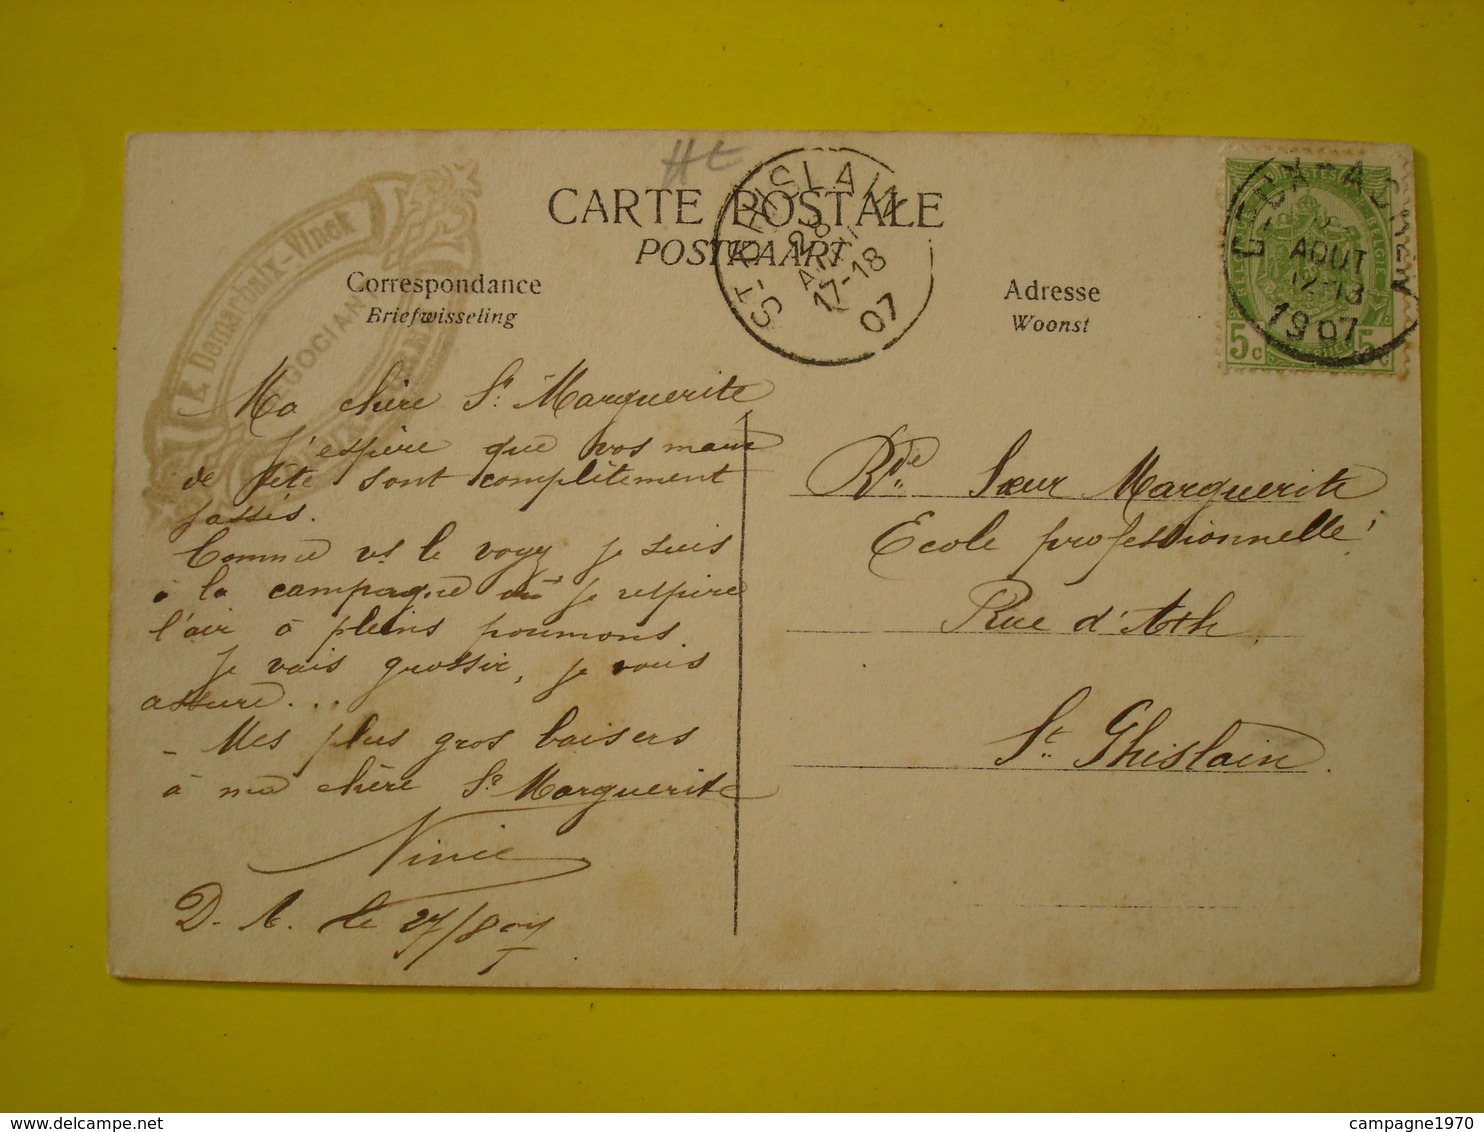 Ht
CARTE POSTALE
POSTKAART
Correspondance
Briefwisseling
Adresse
Woonst
E. Demarbaix-Vinck
NEGOCIANT
ST-GHISLAIN
28
AOUT
17-18
07
AOUT
12-13
1907
5c 5c
Ma chère Sr Marguerite
J'espère que vos maux
de tête sont complètement
passés.
Comme vs le voyez je suis
à la campagne où je respire
l'air à pleins poumons.
Je vais grossir, je vous
assure...
- Mes plus gros baisers
à ma chère Sr Marguerite
Ninie
le 27/8 07
Rde Sœur Marguerite
Ecole professionnelle
Rue d'Ath
St Ghislain.
www.delcampe.net
campagne1970